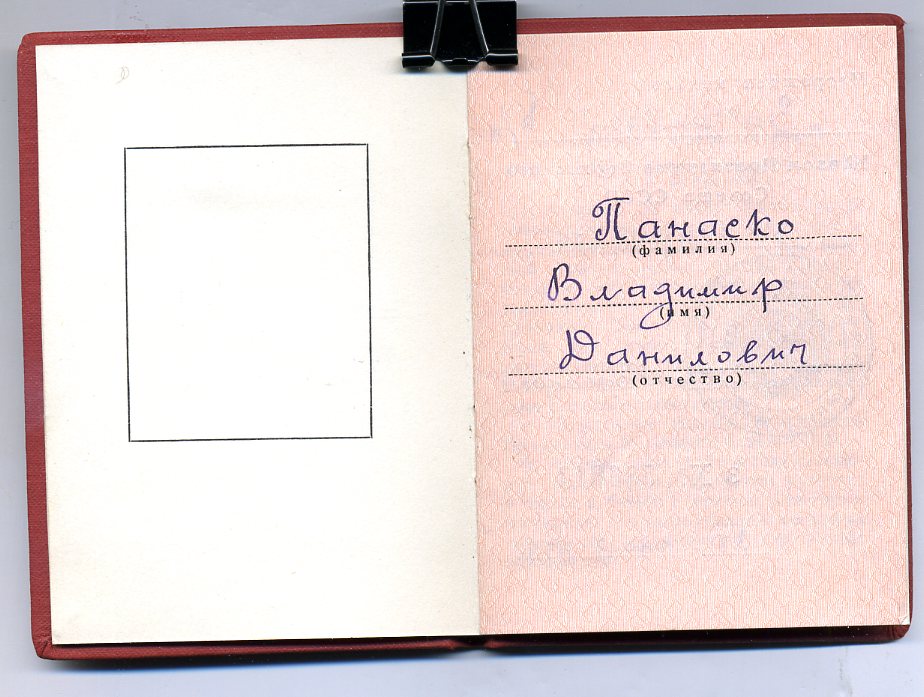 Панаско
(фамилия)
Владимир
(имя)
Данилович
(отчество)